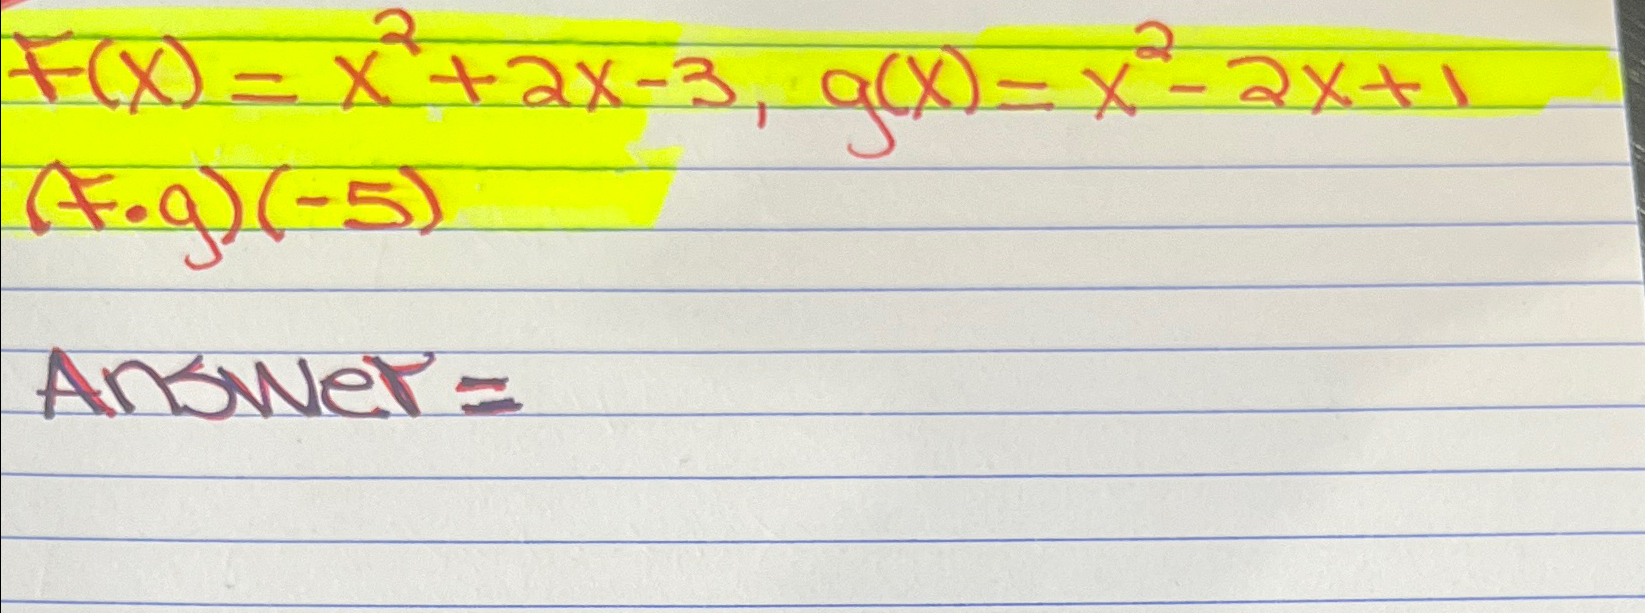 F(x) = x² + 2x - 3, g(x) = x² - 2x + 1
(F•g)(-5)
Answer =